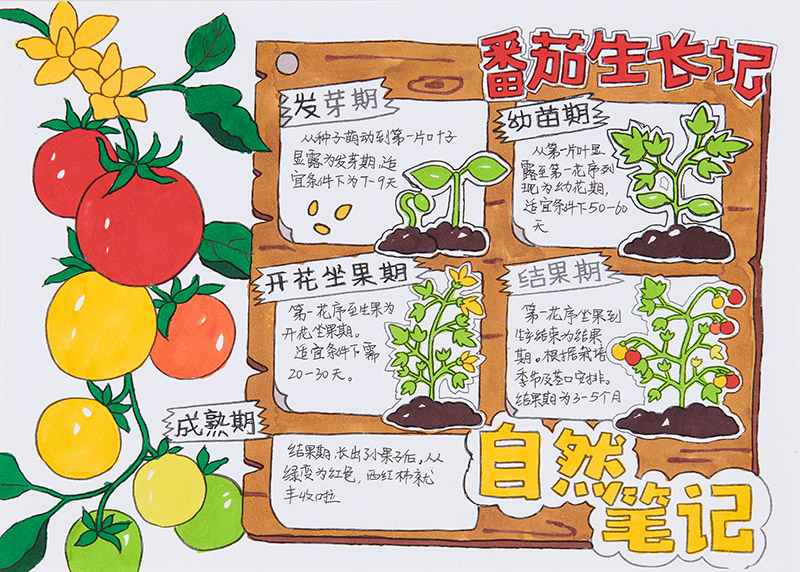 番茄生长记
发芽期
从种子萌动到第一片叶子
显露为发芽期，适
宜条件下为7-9天
幼苗期
从第一片叶显
露至第一花序到
现为幼花期，
适宜条件下50-60
天
开花坐果期
第一花序至生果为
开花坐果期。
适宜条件下需
20-30天。
结果期
第一花序坐果到
结束为结果
期。根据栽培
季节及茬口安排。
结果期为3-5个月
成熟期
结果期，长出了小果子后，从
绿变为红色，西红柿就
丰收啦
自然
笔记